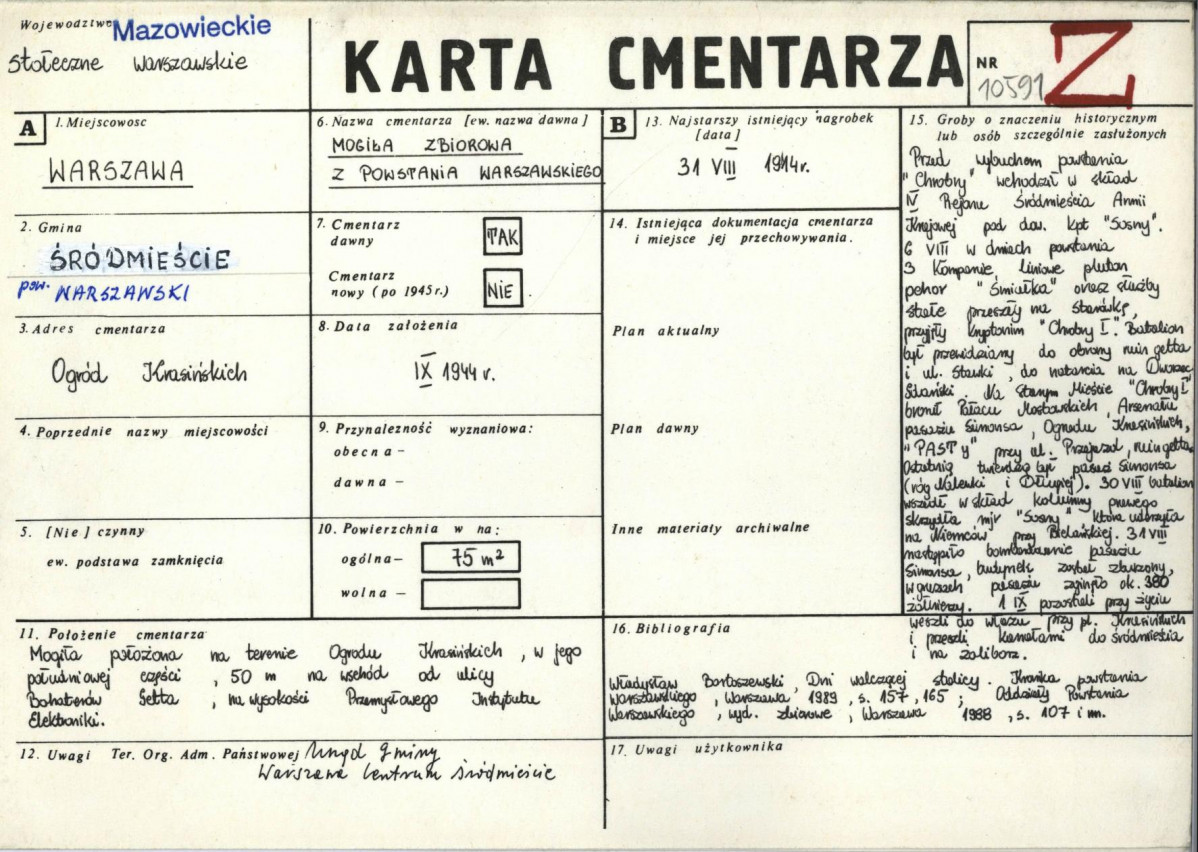 Województwo Mazowieckie
Stołeczne Warszawskie
KARTA CMENTARZA
NR
10591
Z
A
1. Miejscowosc
WARSZAWA
2. Gmina
ŚRÓDMIEŚCIE
pow. WARSZAWSKI
3. Adres cmentarza
Ogród Krasińskich
4. Poprzednie nazwy miejscowości
5. [Nie] czynny
ew. podstawa zamknięcia
6. Nazwa cmentarza [ew. nazwa dawna]
MOGIŁA ZBIOROWA
Z POWSTANIA WARSZAWSKIEGO
7. Cmentarz
dawny
TAK
Cmentarz
nowy (po 1945r.)
NIE
8. Data założenia
IX 1944 r.
9. Przynależność wyznaniowa:
obecna –
dawna –
10. Powierzchnia w ha:
ogólna – 75 m²
wolna –
B
13. Najstarszy istniejący nagrobek
[data]
31 VIII 1944r.
14. Istniejąca dokumentacja cmentarza
i miejsce jej przechowywania.
Plan aktualny
Plan dawny
Inne materiały archiwalne
15. Groby o znaczeniu historycznym
lub osób szczególnie zasłużonych
Przed wybuchem powstania
"Chrobry" wchodził w skład
IV Rejonu Śródmieścia Armii
Krajowej pod dow. kpt "Sosny".
6 VIII w dniach powstania
3 kompanie, liniowe pluton
pchor "Śmiałka" oraz służby
stałe przeszły na Starówkę,
przyjęły kryptonim "Chrobry I". Batalion
był przewidziany do obrony ruin getta
i ul. Stawki, do natarcia na Dworzec
Gdański. Na Starym Mieście "Chrobry I"
bronił Pałacu Mostowskich, Arsenału
pasażu Simonsa, Ogrodu Krasińskich,
"PASTy" przy ul. Przejazd, ruin getta.
Ostatnią twierdzą był pasaż Simonsa
(róg Nalewki i Długiej). 30 VIII batalion
wszedł w skład kolumny prawego
skrzydła mjr "Sosny" która uderzyła
na Niemców przy Bielańskiej. 31 VIII
nastąpiło bombardowanie pasażu
Simonsa, budynek został zburzony,
w gruzach pasażu zginęło ok. 380
żołnierzy. 1 IX pozostali przy życiu
weszli do włazu przy pl. Krasińskich
i przeszli kanałami do śródmieścia
i na żoliborz.
11. Położenie cmentarza
Mogiła położona na terenie Ogrodu Krasińskich, w jego
południowej części, 50 m na wschód od ulicy
Bohaterów Getta, na wysokości Przemysłowego Instytutu
Elektroniki.
12. Uwagi Ter. Org. Adm. Państwowej Urząd Gminy
Warszawa Centrum Śródmieście
16. Bibliografia
Władysław Bartoszewski, Dni walczącej stolicy. Kronika powstania
Warszawskiego, Warszawa 1989, s. 157, 165; Oddziały Powstania
Warszawskiego, wyd. zbiorowe, Warszawa 1988, s. 107 i nn.
17. Uwagi użytkownika